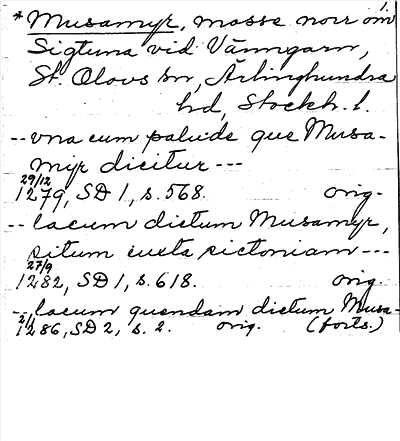 1.
* Musamyr, mosse norr om
Sigtuna vid Vänngarn,
St. Olovs sn, Ärlinghundra
hd, Stockh. l.
-- vna cum palude que Musa-
myr dicitur ---
29/12
1279, SD 1, s. 568. orig.
-- lacum dictum Musamyr,
situm iuxta sictoniam ---
27/9
1282, SD 1, s. 618. orig.
-- lacum quendam dictum Musa-
1286, SD 2, s. 2. orig. (forts.)